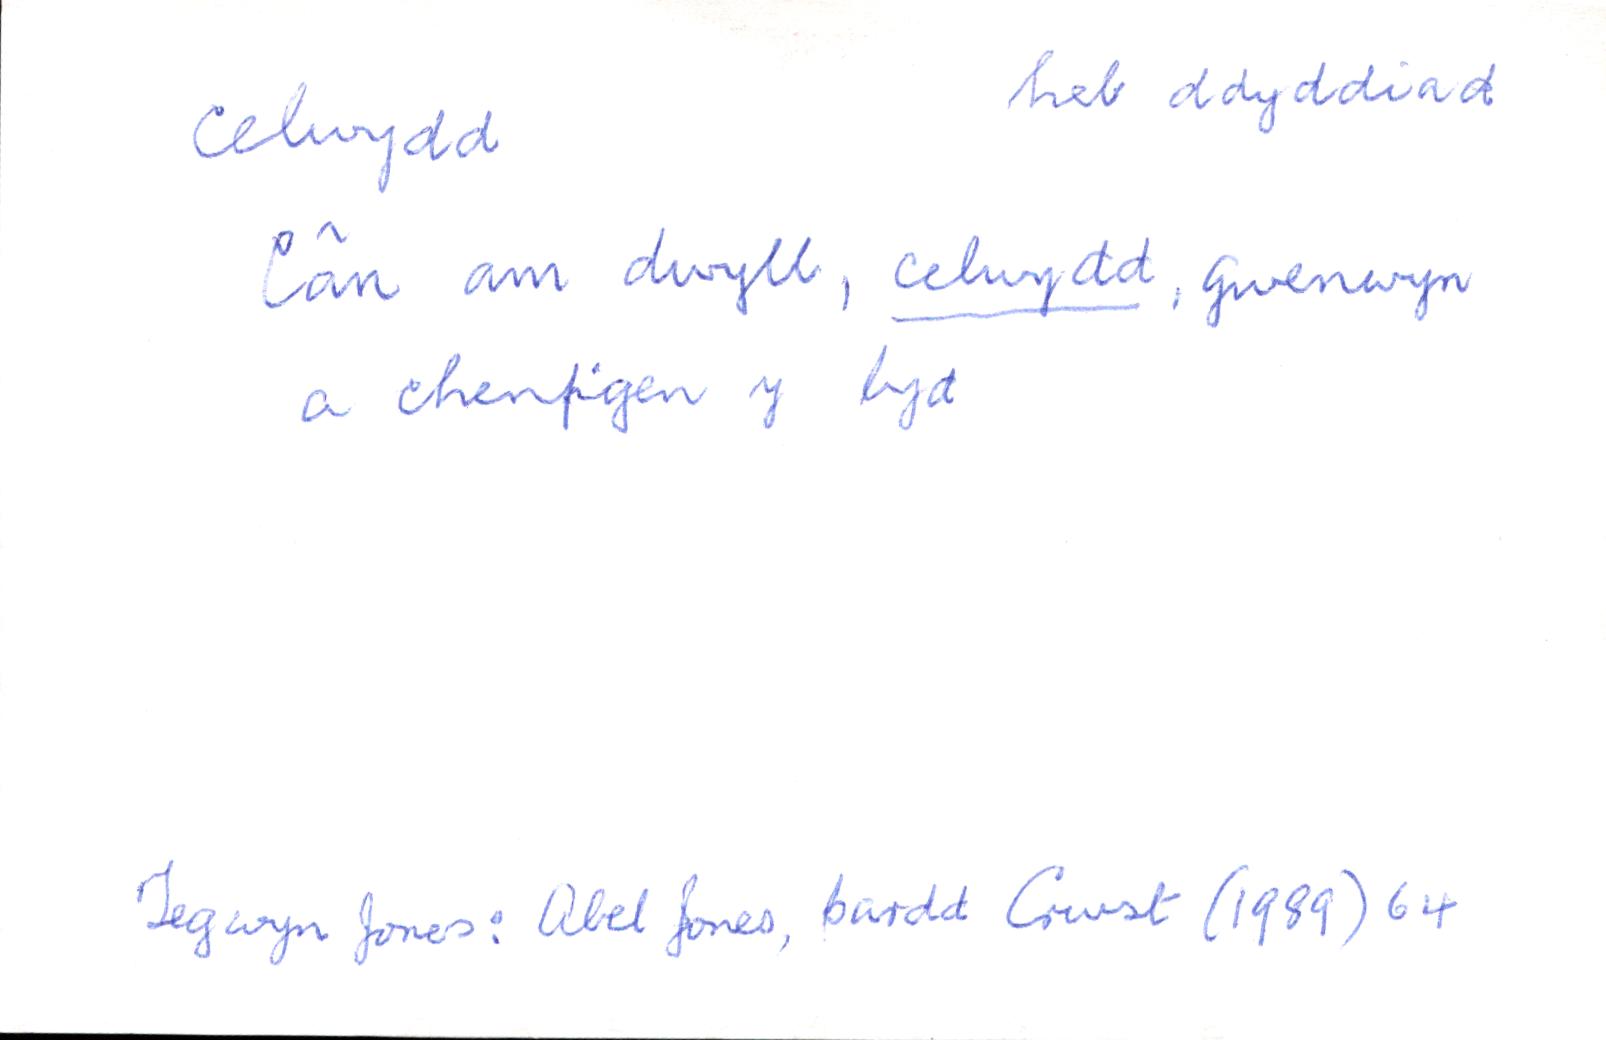 celwydd
heb ddyddiad
Cân am dwyll, celwydd, gwenwyn
a chenfigen y byd
Tegwyn Jones: Abel Jones, bardd Crwst (1989) 64